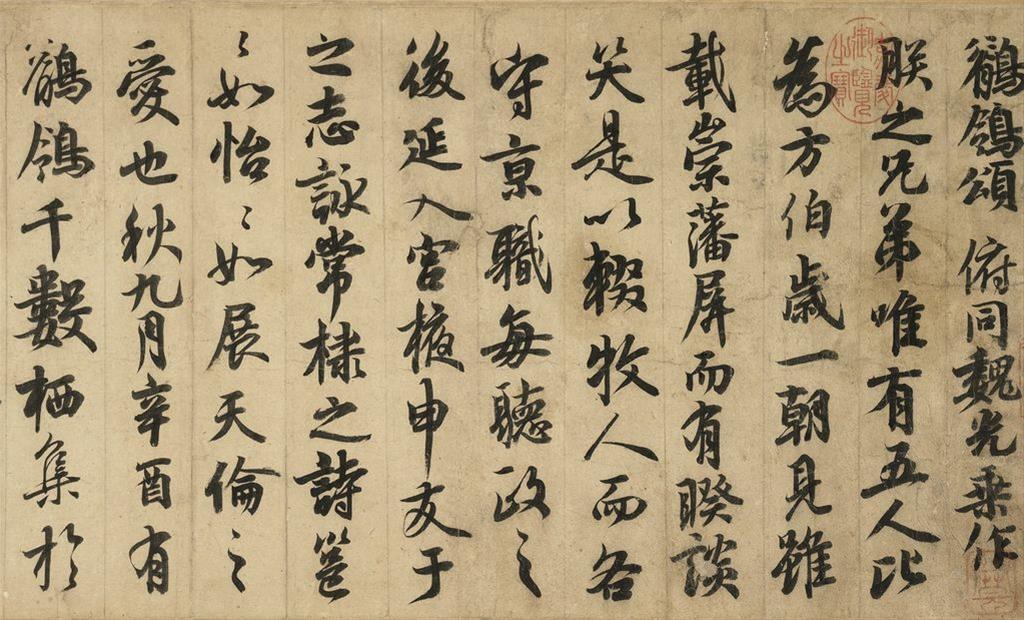 鶺鴒頌 俯同魏光乘作
朕之兄弟唯有五人比
為方伯歲一朝見雖
載崇藩屏而有睽談
笑是以輟牧人而各
守京職每聽政之
後延入宮掖申友于
之志詠常棣之詩邕
〻如怡〻如展天倫之
愛也秋九月辛酉有
鶺鴒千數栖集於
嘉慶御覽之寶